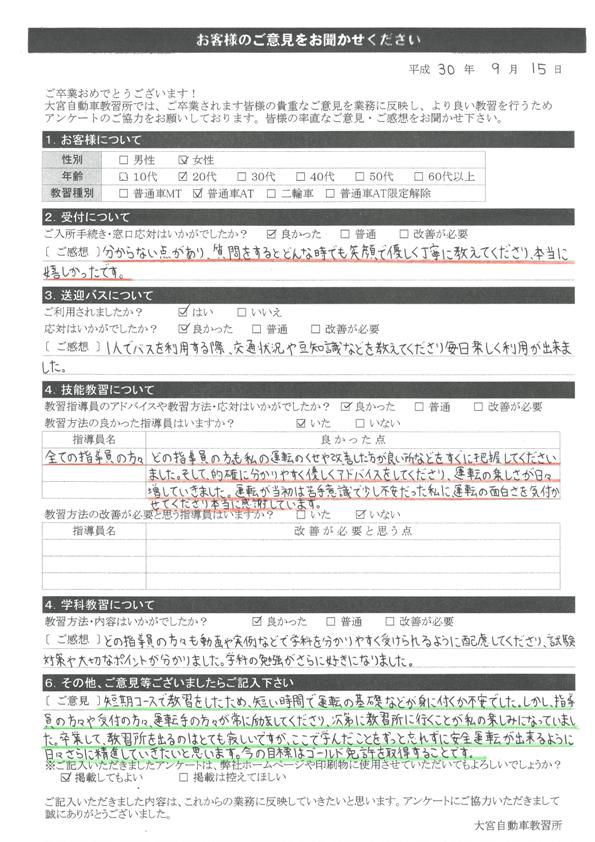 お客様のご意見をお聞かせください
平成 30 年 9 月 15 日
ご卒業おめでとうございます！
大宮自動車教習所では、ご卒業されます皆様の貴重なご意見を業務に反映し、より良い教習を行うため
アンケートのご協力をお願いしております。皆様の率直なご意見・ご感想をお聞かせ下さい。
1. お客様について
性別 □ 男性 ☑ 女性
年齢 □ 10代 ☑ 20代 □ 30代 □ 40代 □ 50代 □ 60代以上
教習種別 □ 普通車MT ☑ 普通車AT □ 二輪車 □ 普通車AT限定解除
2. 受付について
ご入所手続き・窓口応対はいかがでしたか？ ☑ 良かった □ 普通 □ 改善が必要
[ ご感想 ] 分からない点があり、質問をするとどんな時でも笑顔で優しく丁寧に教えてくださり、本当に
嬉しかったです。
3. 送迎バスについて
ご利用されましたか？ ☑ はい □ いいえ
応対はいかがでしたか？ ☑ 良かった □ 普通 □ 改善が必要
[ ご感想 ] 1人でバスを利用する際、交通状況や豆知識などを教えてくださり毎日楽しく利用が出来ま
した。
4. 技能教習について
教習指導員のアドバイスや教習方法・応対はいかがでしたか？ ☑ 良かった □ 普通 □ 改善が必要
教習方法の良かった指導員はいますか？ ☑ いた □ いない
指導員名 良かった点
全ての指導員の方々 どの指導員の方も私の運転のくせや改善した方が良い所などをすぐに把握してください
ました。そして、的確に分かりやすく優しくアドバイスをしてくださり、運転の楽しさが日々
増していきました。運転が当初は苦手意識で少し不安だった私に、運転の面白さを気付か
せてくださり本当に感謝しています。
教習方法の改善が必要と思う指導員はいますか？ □ いた ☑ いない
指導員名 改善が必要と思う点
4. 学科教習について
教習方法・内容はいかがでしたか？ ☑ 良かった □ 普通 □ 改善が必要
[ ご感想 ] どの指導員の方々も動画や実例などで学科を分かりやすく受けられるように配慮してくださり、試験
対策や大切なポイントが分かりました。学科の勉強がさらに好きになりました。
6. その他、ご意見等ございましたらご記入下さい
[ ご意見 ] 短期コースで教習をしたため、短い時間で運転の基礎などが身に付くか不安でした。しかし、指導
員の方々や受付の方々、運転手の方々が常に励ましてくださり、次第に教習所に行くことが私の楽しみになっていまし
た。卒業して、教習所を出るのはとても寂しいですが、ここで学んだことをずっと忘れずに安全運転が出来るように
日々さらに精進していきたいと思います。今の目標はゴールド免許を取得することです。
※ご記入いただきましたアンケートは、弊社ホームページや印刷物に使用させていただいてもよろしいでしょうか？
☑ 掲載してもよい □ 掲載は控えてほしい
ご記入いただきました内容は、これからの業務に反映していきたいと思います。アンケートにご協力いただきまして
誠にありがとうございました。
大宮自動車教習所